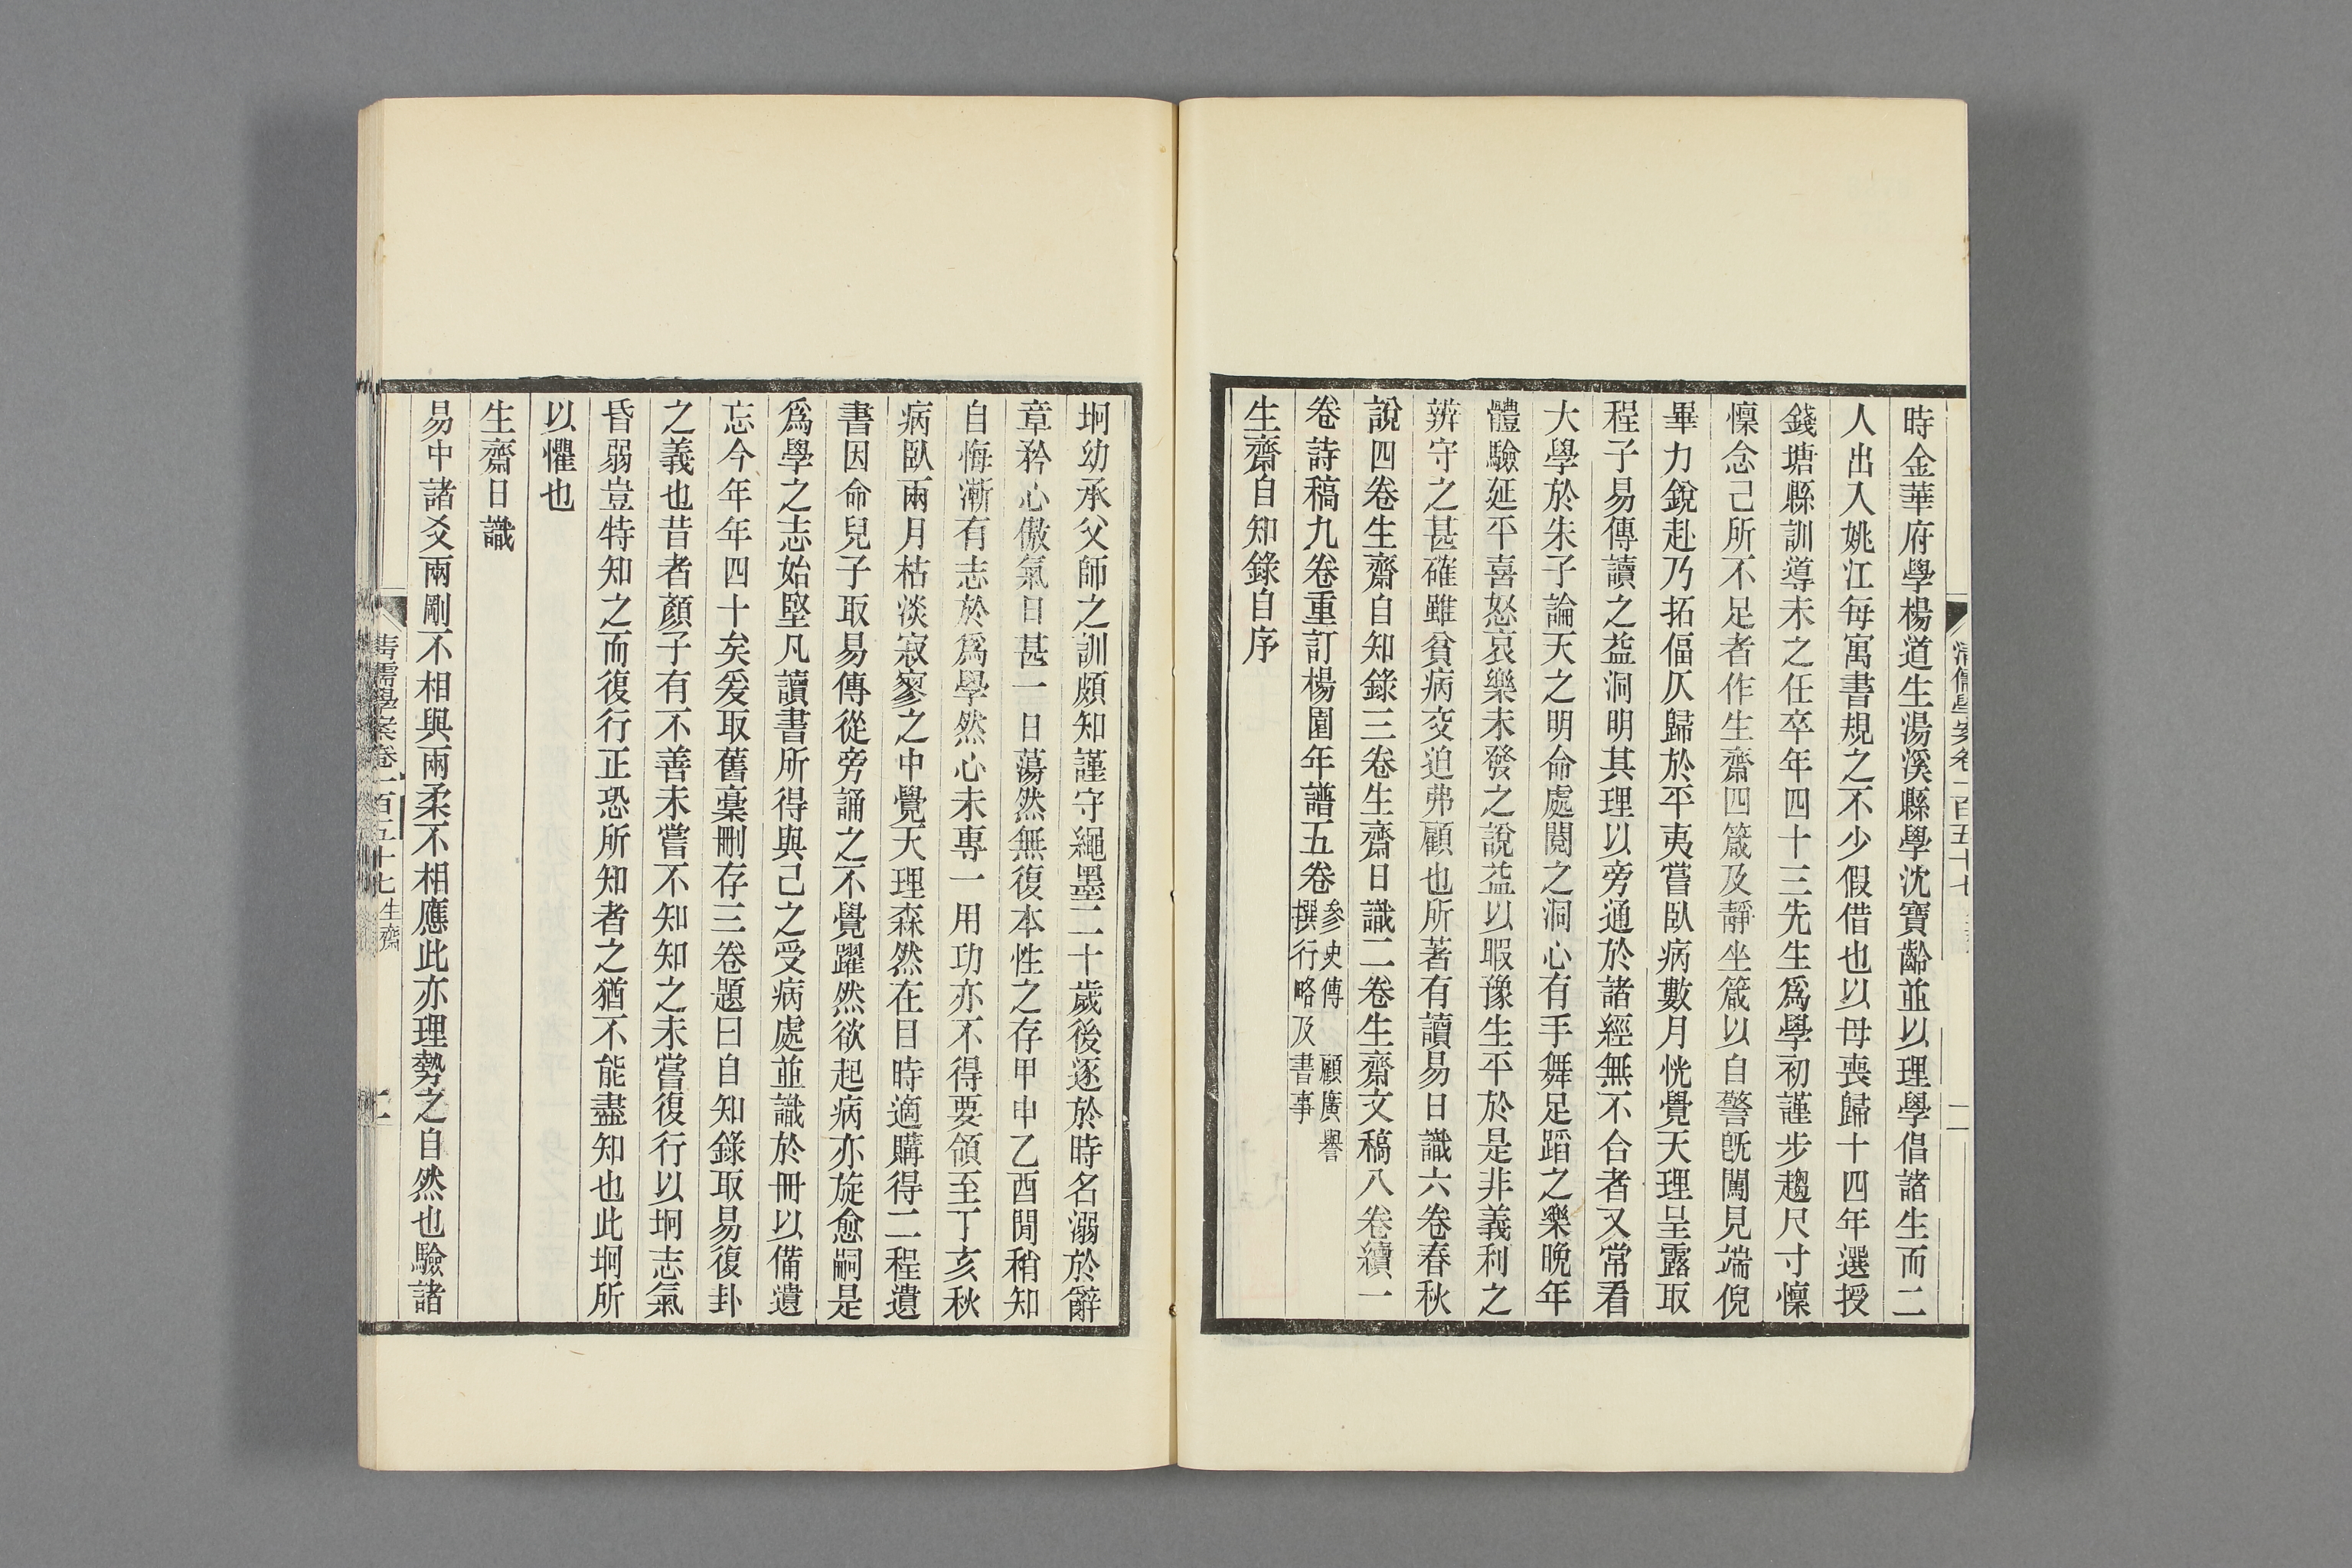 時金華府學楊道生湯溪縣學沈寶齡並以理學倡諸生而二
人出入姚江每寓書規之不少假借也以母喪歸十四年選授
錢塘縣訓導未之任卒年四十三先生爲學初謹步趨尺寸懍
懍念己所不足者作生齋四箴及靜坐箴以自警旣闖見端倪
畢力銳赴乃拓偪仄歸於平夷嘗臥病數月恍覺天理呈露取
程子易傳讀之益洞明其理以旁通於諸經無不合者又常看
大學於朱子論天之明命處閱之洞心有手舞足蹈之樂晚年
體驗延平喜怒哀樂未發之說益以暇豫生平於是非義利之
辨守之甚確雖貧病交迫弗顧也所著有讀易日識六卷春秋
說四卷生齋自知錄三卷生齋日識二卷生齋文稿八卷續一
卷詩稿九卷重訂楊園年譜五卷
參史傳 顧廣譽
撰行略及書事
生齋自知錄自序
坰幼承父師之訓頗知謹守繩墨二十歲後逐於時名溺於辭
章矜心傲氣日甚一日蕩然無復本性之存甲申乙酉閒稍知
自悔漸有志於爲學然心未專一用功亦不得要領至丁亥秋
病臥兩月枯淡寂寥之中覺天理森然在目時適購得二程遺
書因命兒子取易傳從旁誦之不覺躍然欲起病亦旋愈嗣是
爲學之志始堅凡讀書所得與己之受病處並識於冊以備遺
忘今年年四十矣爰取舊稾刪存三卷題曰自知錄取易復卦
之義也昔者顏子有不善未嘗不知知之未嘗復行以坰志氣
昏弱豈特知之而復行正恐所知者之猶不能盡知也此坰所
以懼也
生齋日識
易中諸爻兩剛不相與兩柔不相應此亦理勢之自然也驗諸
清儒學案卷一百五十七 生齋 二